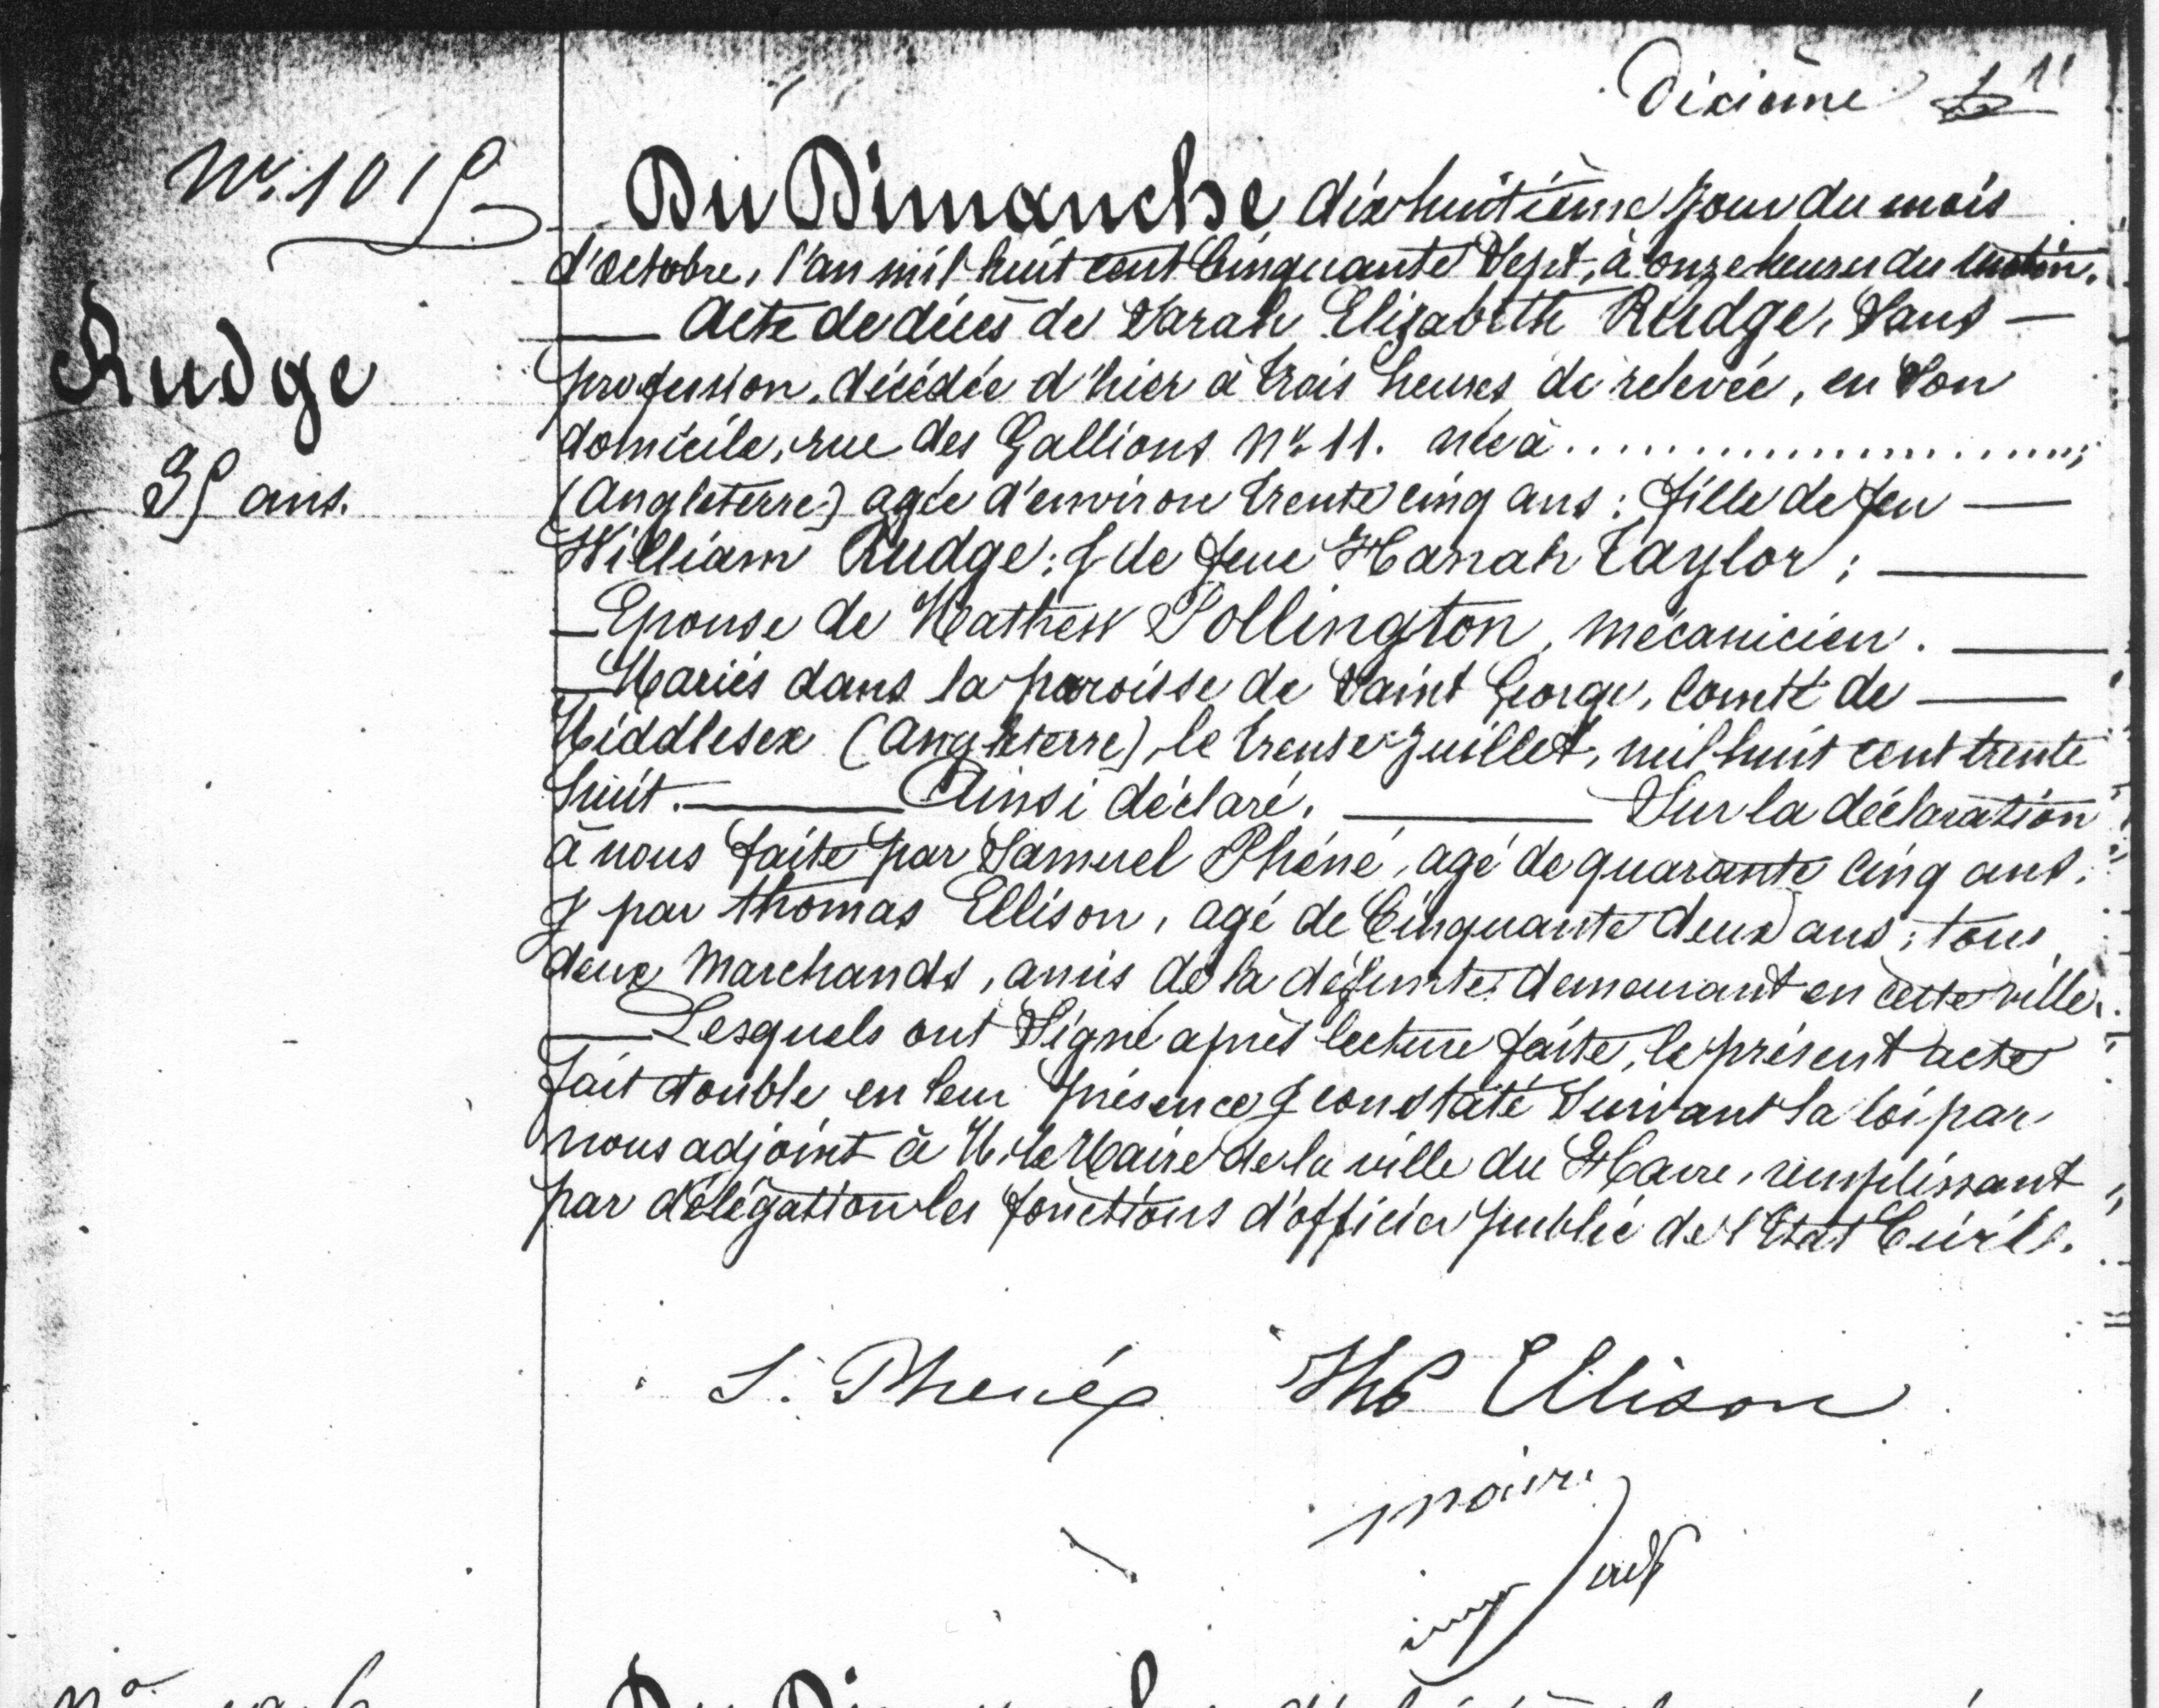 Dixième
N° 1015
Du Dimanche dixhuitième jour du mois
d'octobre, l'an mil huit cent Cinquante Sept, à onze heures du matin.
Acte de décès de Sarah Elizabeth Rudge, Sans
Rudge
profession, décédée d'hier à trois heures de relevée, en Son
domicile, rue des Gallions N° 11. née à ......................;
35 ans.
(Angleterre) agée d'environ trente cinq ans; fille de feu
William Rudge; & de feue Hanah Taylor;
Epouse de Mathew Pollington, mécanicien.
Mariés dans la paroisse de Saint George, Comté de
Middlesex (Angleterre), le trente juillet, mil huit cent trente
huit. Ainsi déclaré. Sur la déclaration
à nous faite par Samuel Phéné, agé de quarante cinq ans,
& par thomas Ellison, agé de Cinquante deux ans; tous
deux Marchands, amis de la défunte, demeurant en cette ville.
Lesquels ont Signé après lecture faite, le présent acte
fait double en leur présence & constaté Suivant la loi par
nous adjoint à M. le Maire de la ville du Havre, remplissant
par délégation les fonctions d'officier public de l'Etat Civil.
S. Phené Tho Ellison
Du Dimanche